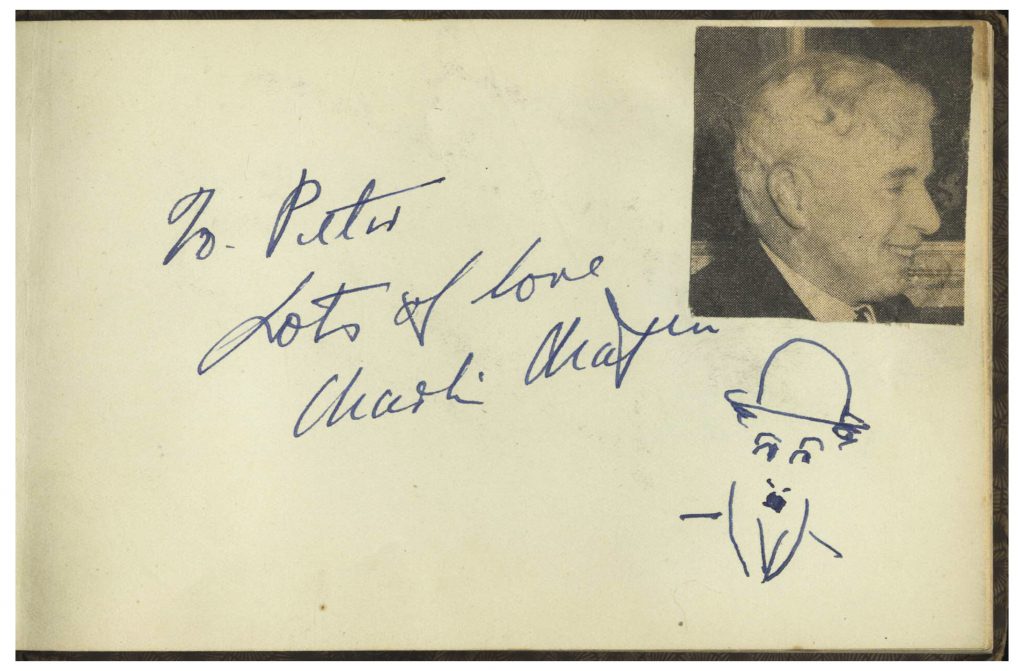 To. Peter
Lots of love
Charlie Chaplin